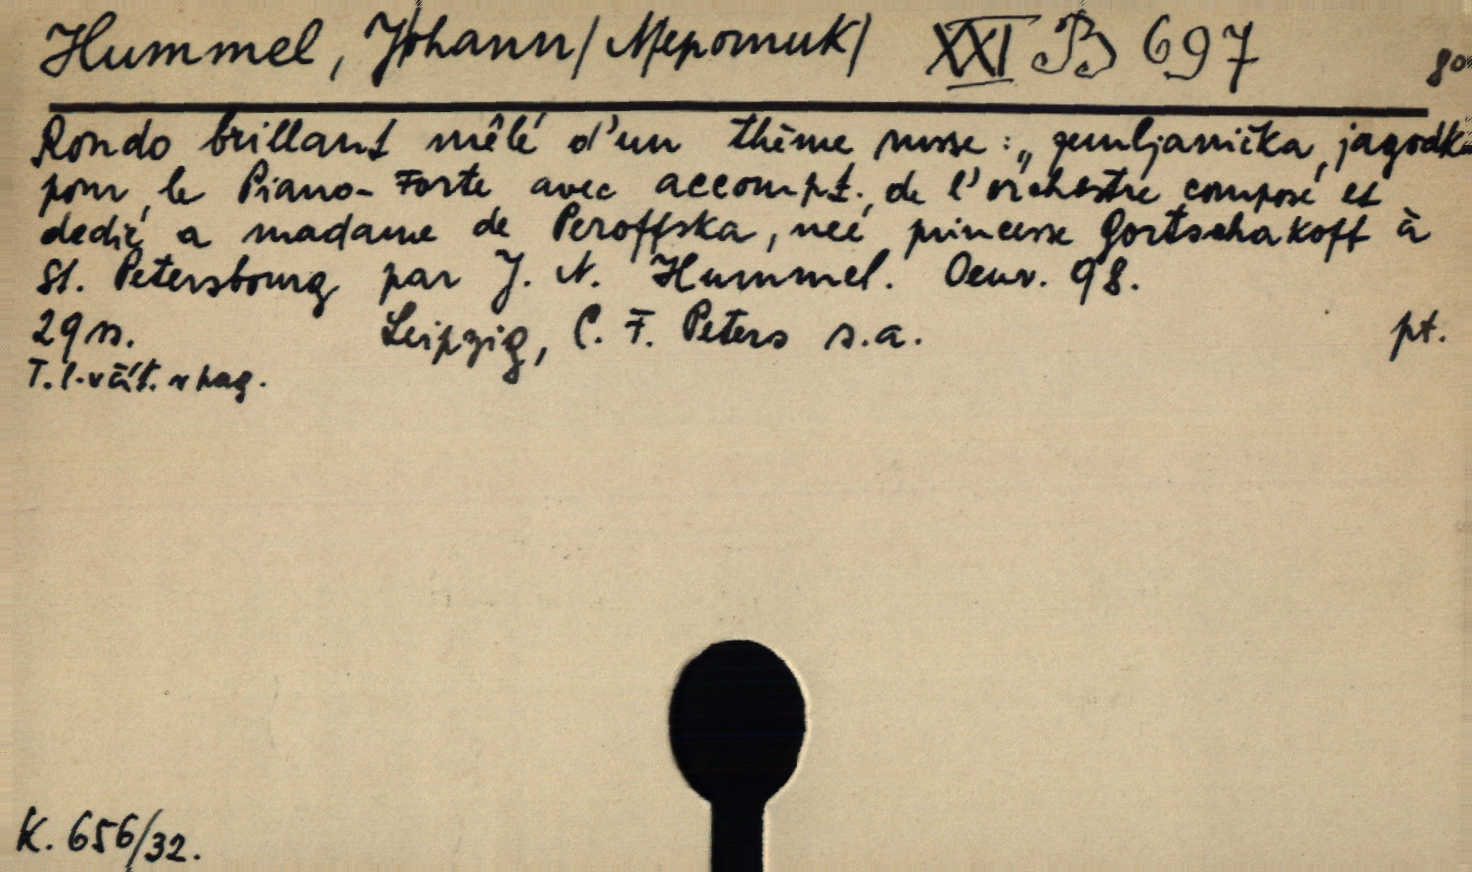 Hummel, Johann/Nepomuk/ XXI B 697 8°
Rondo brillant mêlé d'un thème russe: „zemljanička, jagodka
pour le Piano-Forte avec accompt. de l'orchestre composé et
dedié a madame de Peroffska, neé princesse Gortschakoff à
St. Petersbourg par J. N. Hummel. Oeuv. 98.
29 s. Leipzig, C. F. Peters s.a. pt.
T. l. včít. v pag.
K. 656/32.